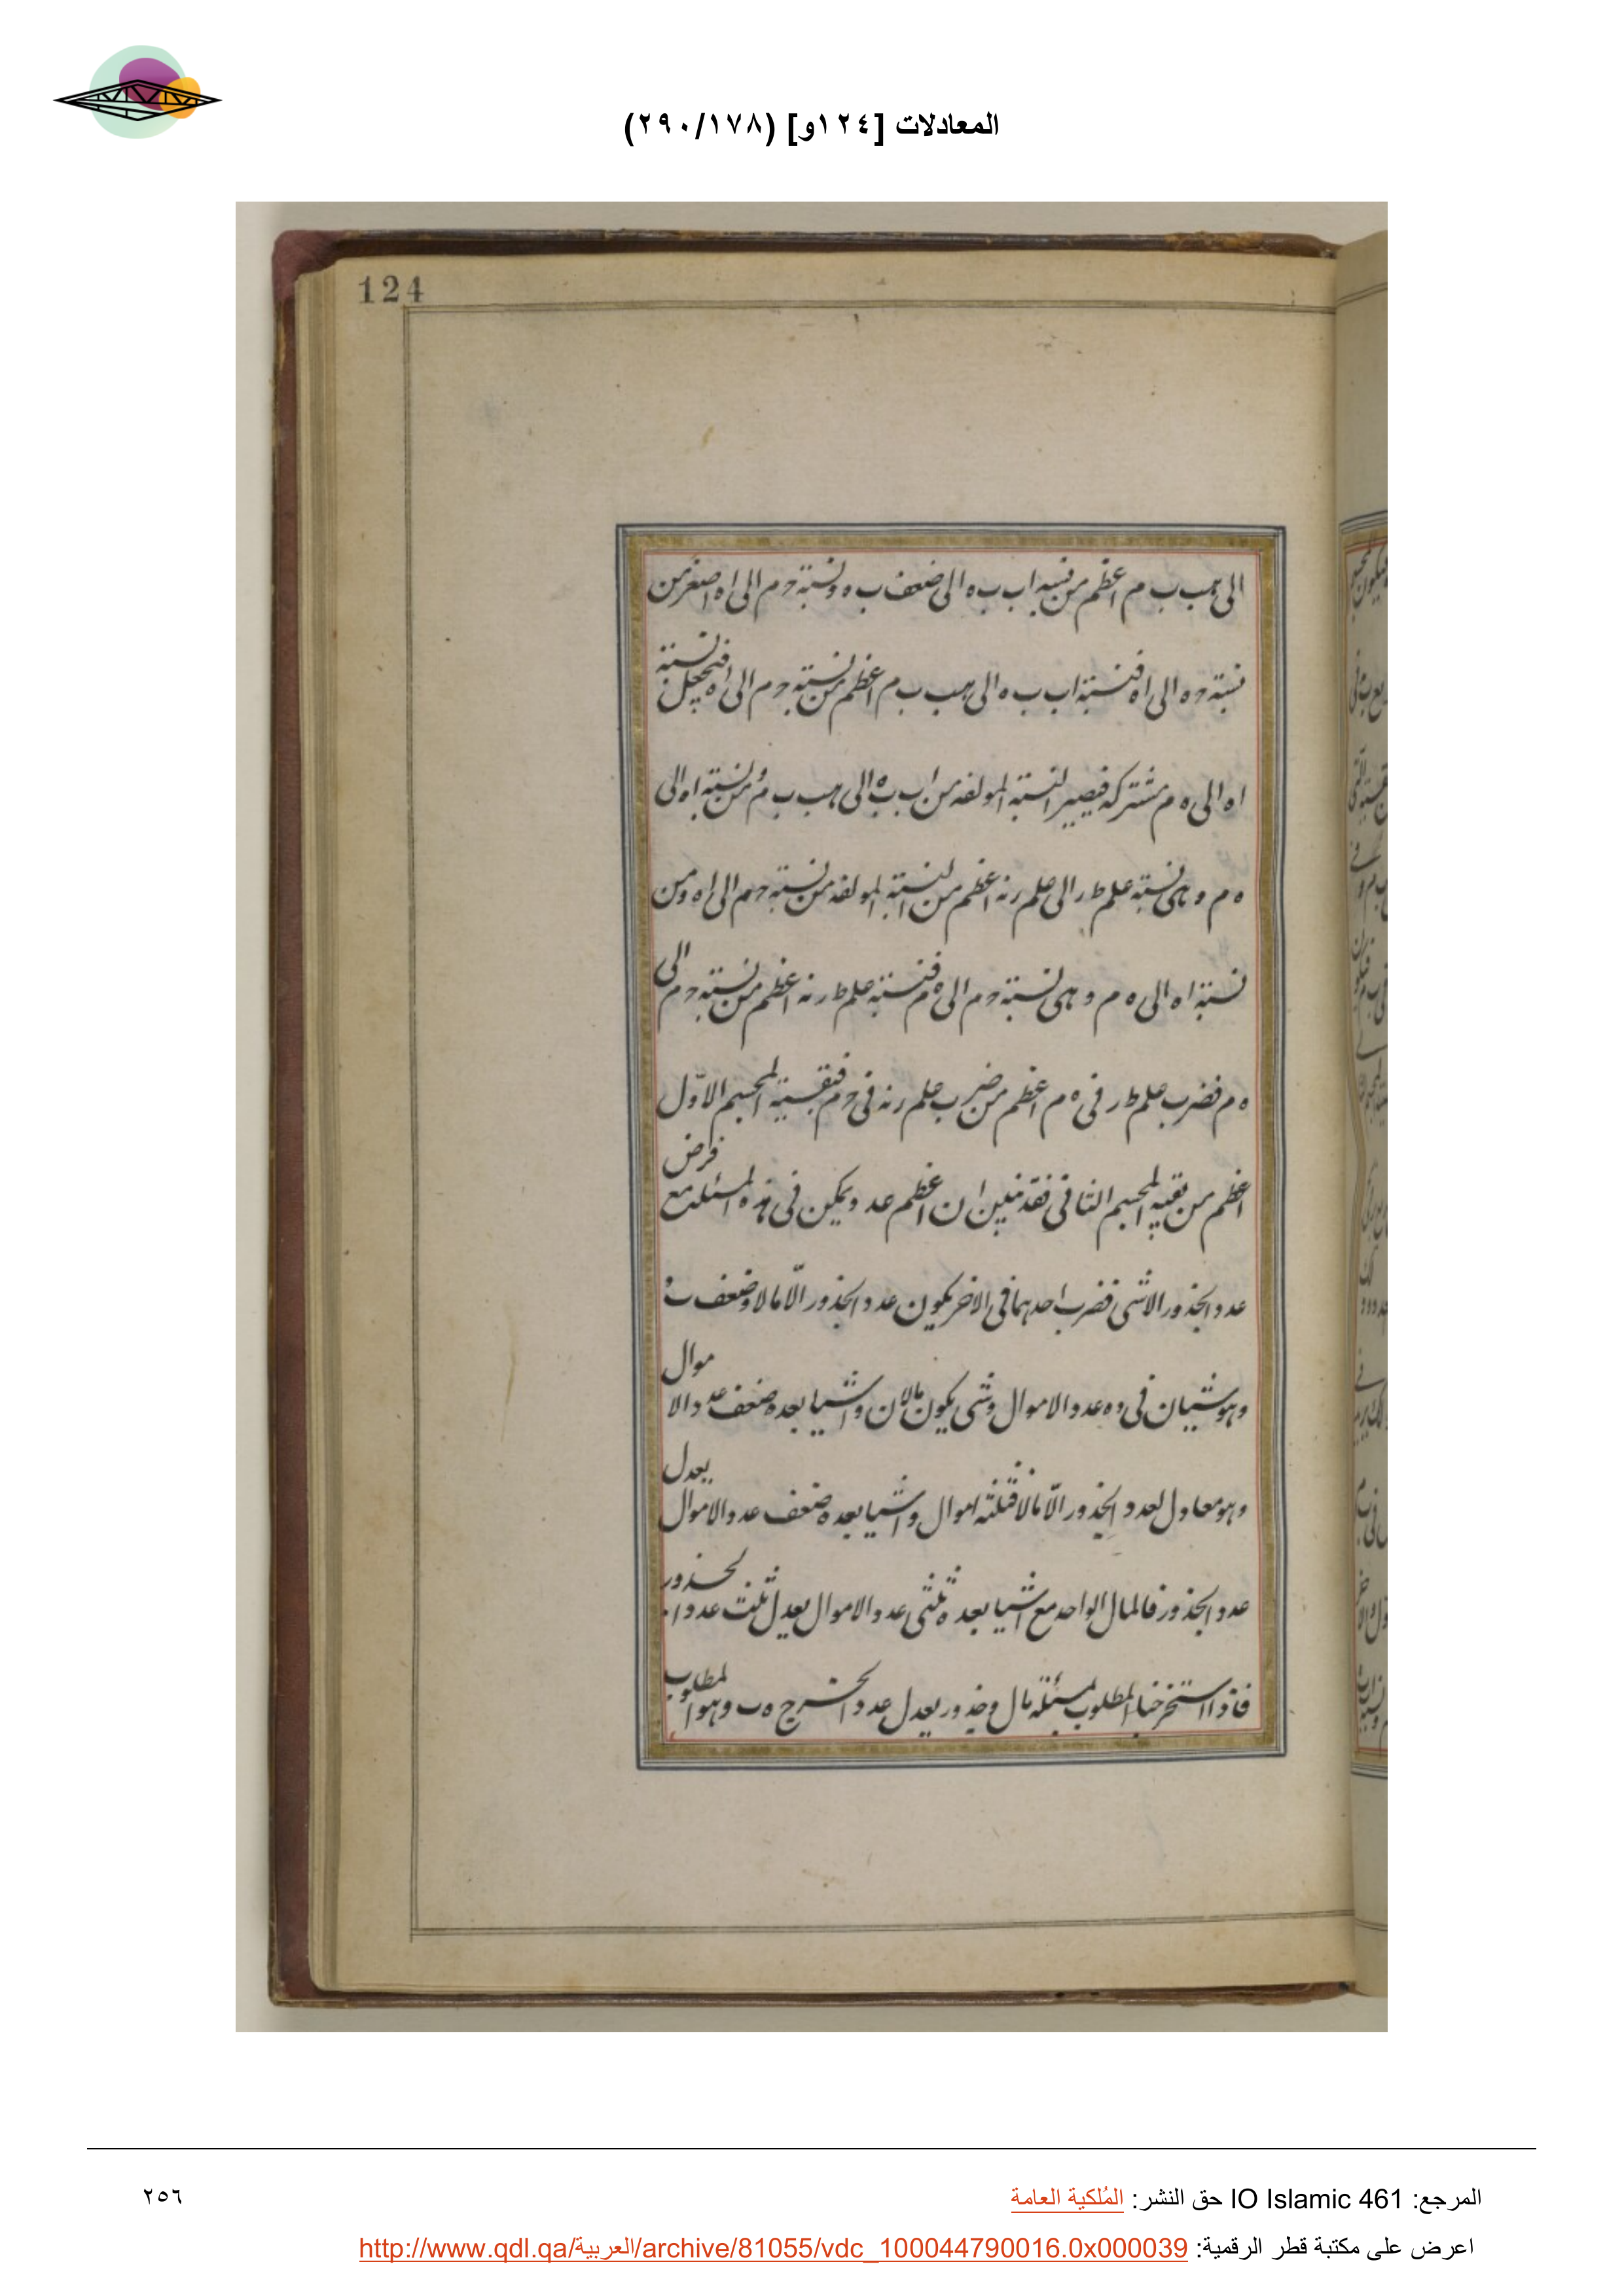 المعادلات [١٢٤و] (٢٩٠/١٧٨)
124
الى هب ب م اعظم من نسبة اب ب ه الى ضعف ب ه ونسبة حم الى اه اصغر من
نسبة ح ه الى اه فنسبة اب ب ه الى هب ب م اعظم من نسبة حم الى اه فنجعل نسبة
اه الى ه م مشتركة فيصير النسبة المولفة من اب ب ه الى هب ب م ومن نسبة اه الى
ه م وهى نسبة علم ط ر الى علم ر نه اعظم من النسبة المولفة من نسبة حم الى اه ومن
نسبة اه الى ه م وهى نسبة حم الى ه م فنسبة علم ط ر نه اعظم من نسبة حم الى
ه م فضرب علم ط ر فى ه م اعظم من ضرب علم ر نه فى حم فبقية المجسم الاول
اعظم من بقية المجسم الثانى فقد تبين ان اعظم عدد يمكن فى هذه المسئلة مع فرض
عدد الجذور الاشى فضرب احدهما فى الاخر يكون عدد الجذور الا مالا وضعف
وهو شيان فى ده عدد الاموال وشى يكون مالان واشيا بعده ضعف عدد الاموال
وهو معادل لعدد الجذور الا مالا فثلثة اموال واشيا بعده ضعف عدد الاموال يعدل
عدد الجذور فالمال الواحد مع اشيا بعده ثلثى عدد الاموال يعدل ثلث عدد الجذور
فاذا استخرجنا المطلوب بمسئلة مال وجذور يعدل عدد الخرج ه ب وهو المطلوب
المرجع: IO Islamic 461 حق النشر: المُلكية العامة
٢٥٦
اعرض على مكتبة قطر الرقمية: http://www.qdl.qa/العربية/archive/81055/vdc_100044790016.0x000039